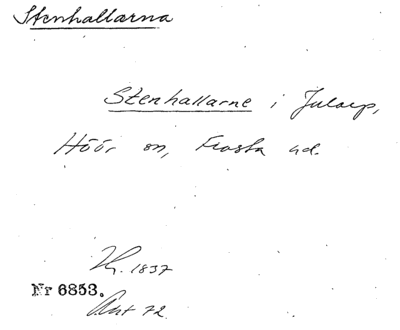 Stenhallarna
Stenhallarne i Jularp,
Höör sn, Frosta hd.
1837
Nr 6853.
Ant 72